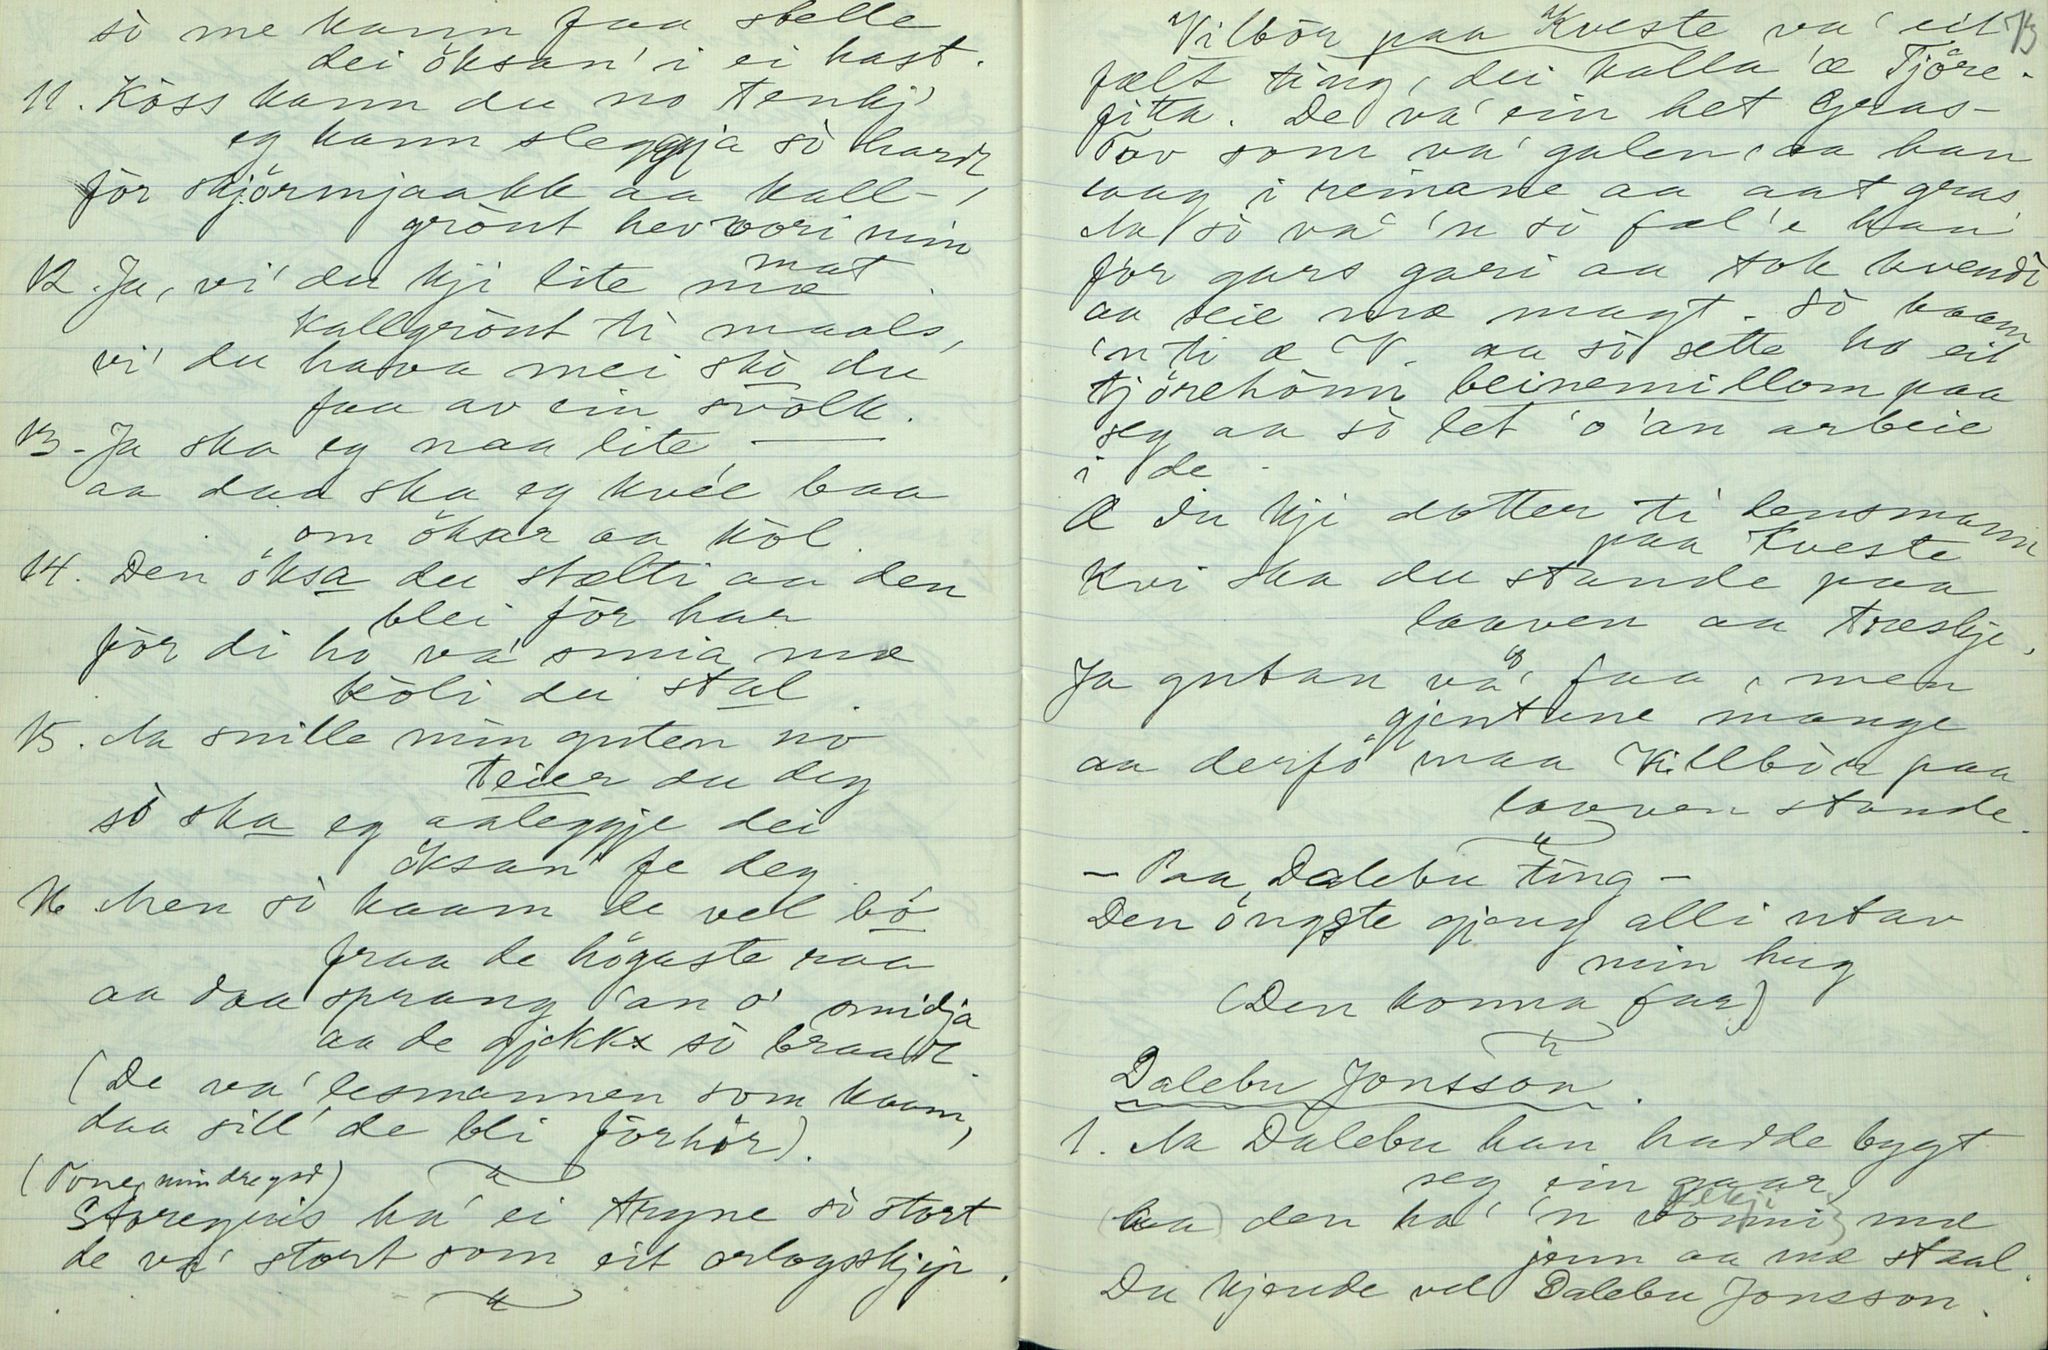 sò me kann faa stelle
dei öksan' i ei hast.
11. Kòss kann du no tenkj'
eg kann sleggja sò hardt,
fòr skjörmjaakk aa kall-
grònt hev vori min
mat.
12. Ja, vi' du kji lite mæ
kallgrònt ti maals,
vi' du hava mei skò du
faa av ein svòlk.
13. Ja ska eg naa lite
aa daa ska eg kvee baa
om öksar aa kòl.
14. Den öksa du stælti aa den
blei fòr har
fòr di ho va' smia mæ
kòli du stal.
15. Aa snille min guten no
teier du deg
sò ska eg aaleggje dei
öksan' fe deg.
16 Men sò kaam de vel bò
fraa de högaste raa
aa daa sprang 'an o' smidja
aa de gjekk sò braadt.
(De va' lesmannen som kaam,
daa sill' de bli förhör).
(Tone mindregsd)
Storeguis ha' ei tryne sò stort
de va' stort som eit orlogsskjip.
73
Vilbòr paa Kveste va' eit
fælt ting, dei kalla 'æ Tjöre-
fitta. De va' ein het Gras-
Tov som va' galen, aa han
laag i reinane aa aat gras,
Aa sò va' 'n sò fæl'e han
fòr gars gari aa tok kvendi
aa reie mæ magt. Sò kaam
'n ti æ V. aa sò sette ho eit
tjörehònn beinemillom paa
seg aa sò let 'o 'an arbeie
i de.
Æ du kji dotter ti lensmann
paa Kveste
Kvi ska du stande paa
laaven aa træskje,
Ja gutan va' faa, men
gjentune mange
aa derfò maa Villbòr paa
laaven stande.
- Paa Dalebu ting -
Den öngste gjeng alli utav
min hug
(Den konna faar)
Dalebu Jonsson.
1. Aa Dalebu han hadde bygt
seg ein gaar,
(aa) den ha' 'n vònni mæ
jenn aa mæ staal.
Du kjende vel Dalebu Jonsson.